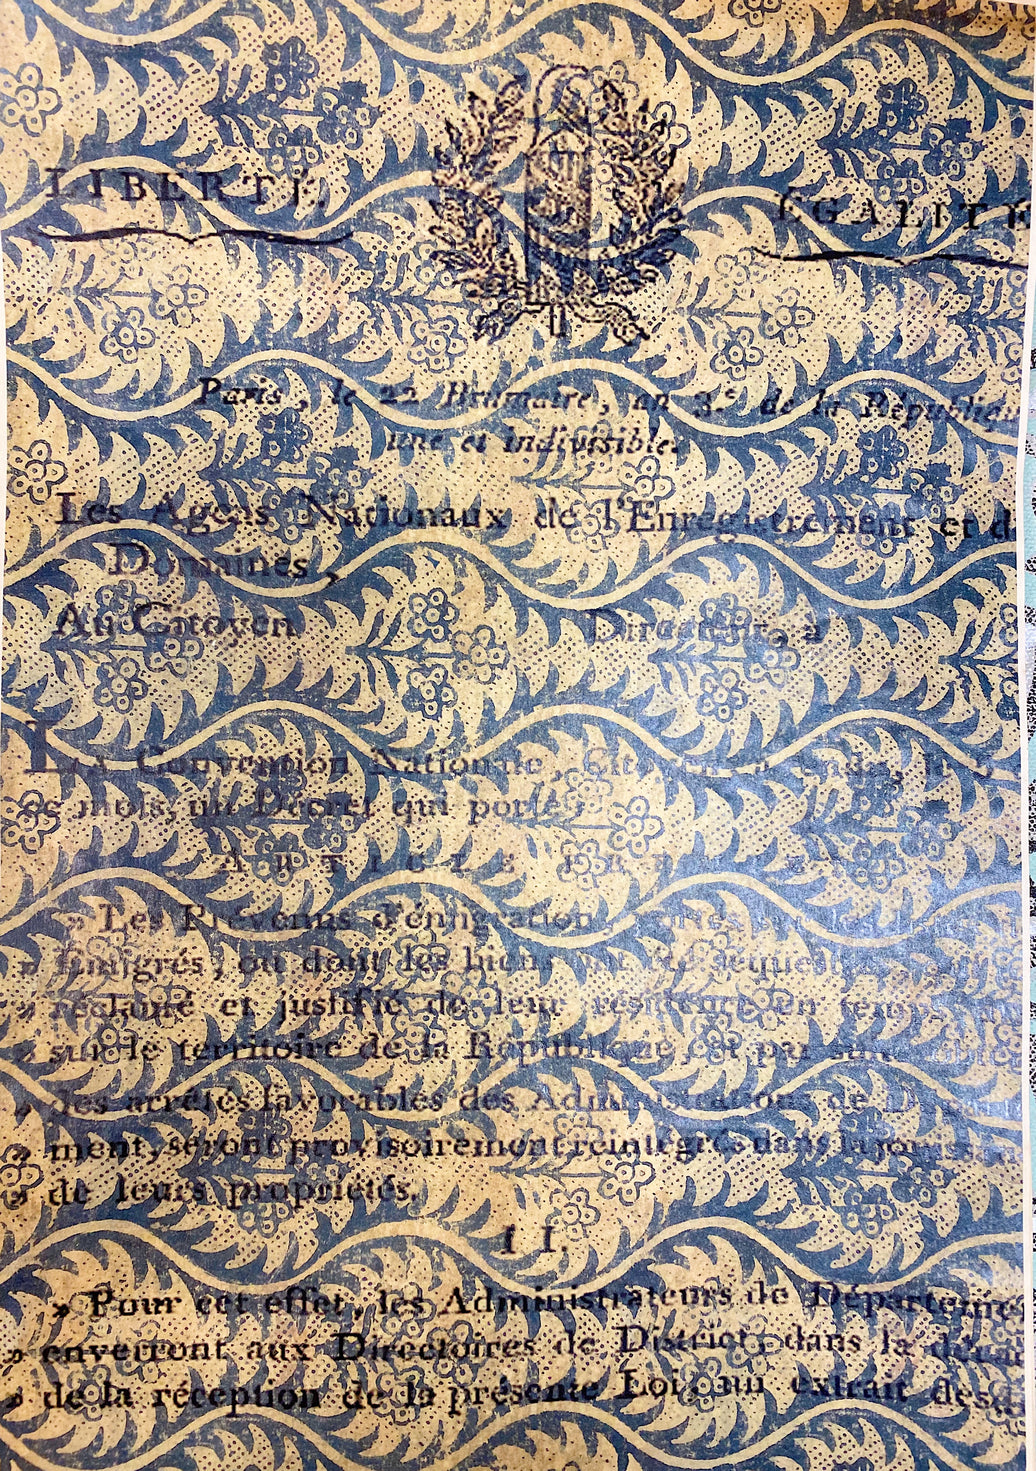 LIBERTÉ.
ÉGALITÉ
Paris, le 22 Brumaire, an 3.e de la République
une et indivisible.
Les Agens Nationaux de l'Enregistrement et d
Domaines,
Au Citoyen Directeur, à
La Convention Nationale, Citoyen, a rendu, le
mois, un Décret qui porte:
ARTICLE
» Les Prévenus d'émigration
» Émigrés, ou dont les biens ont été
» réclamé et justifié de leur résidence en temps
» sur le territoire de la République, et
» des arrêtés favorables des Administrations de
» ment, seront provisoirement réintégrés dans la
» de leurs propriétés.
II.
» Pour cet effet, les Administrateurs de Départeme
» enverront aux Directoires de District, dans la déca
» de la réception de la présente Loi, un extrait des